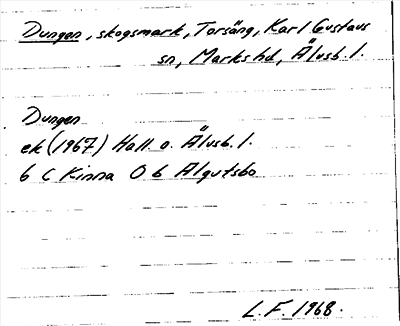 Dungen, skogsmark, Torsäng, Karl Gustavs
sn, Marks hd, Älvsb. l.
Dungen
ek (1967) Hall. o. Älvsb. l.
6 C Kinna O b Algutsbo
L.F. 1968.